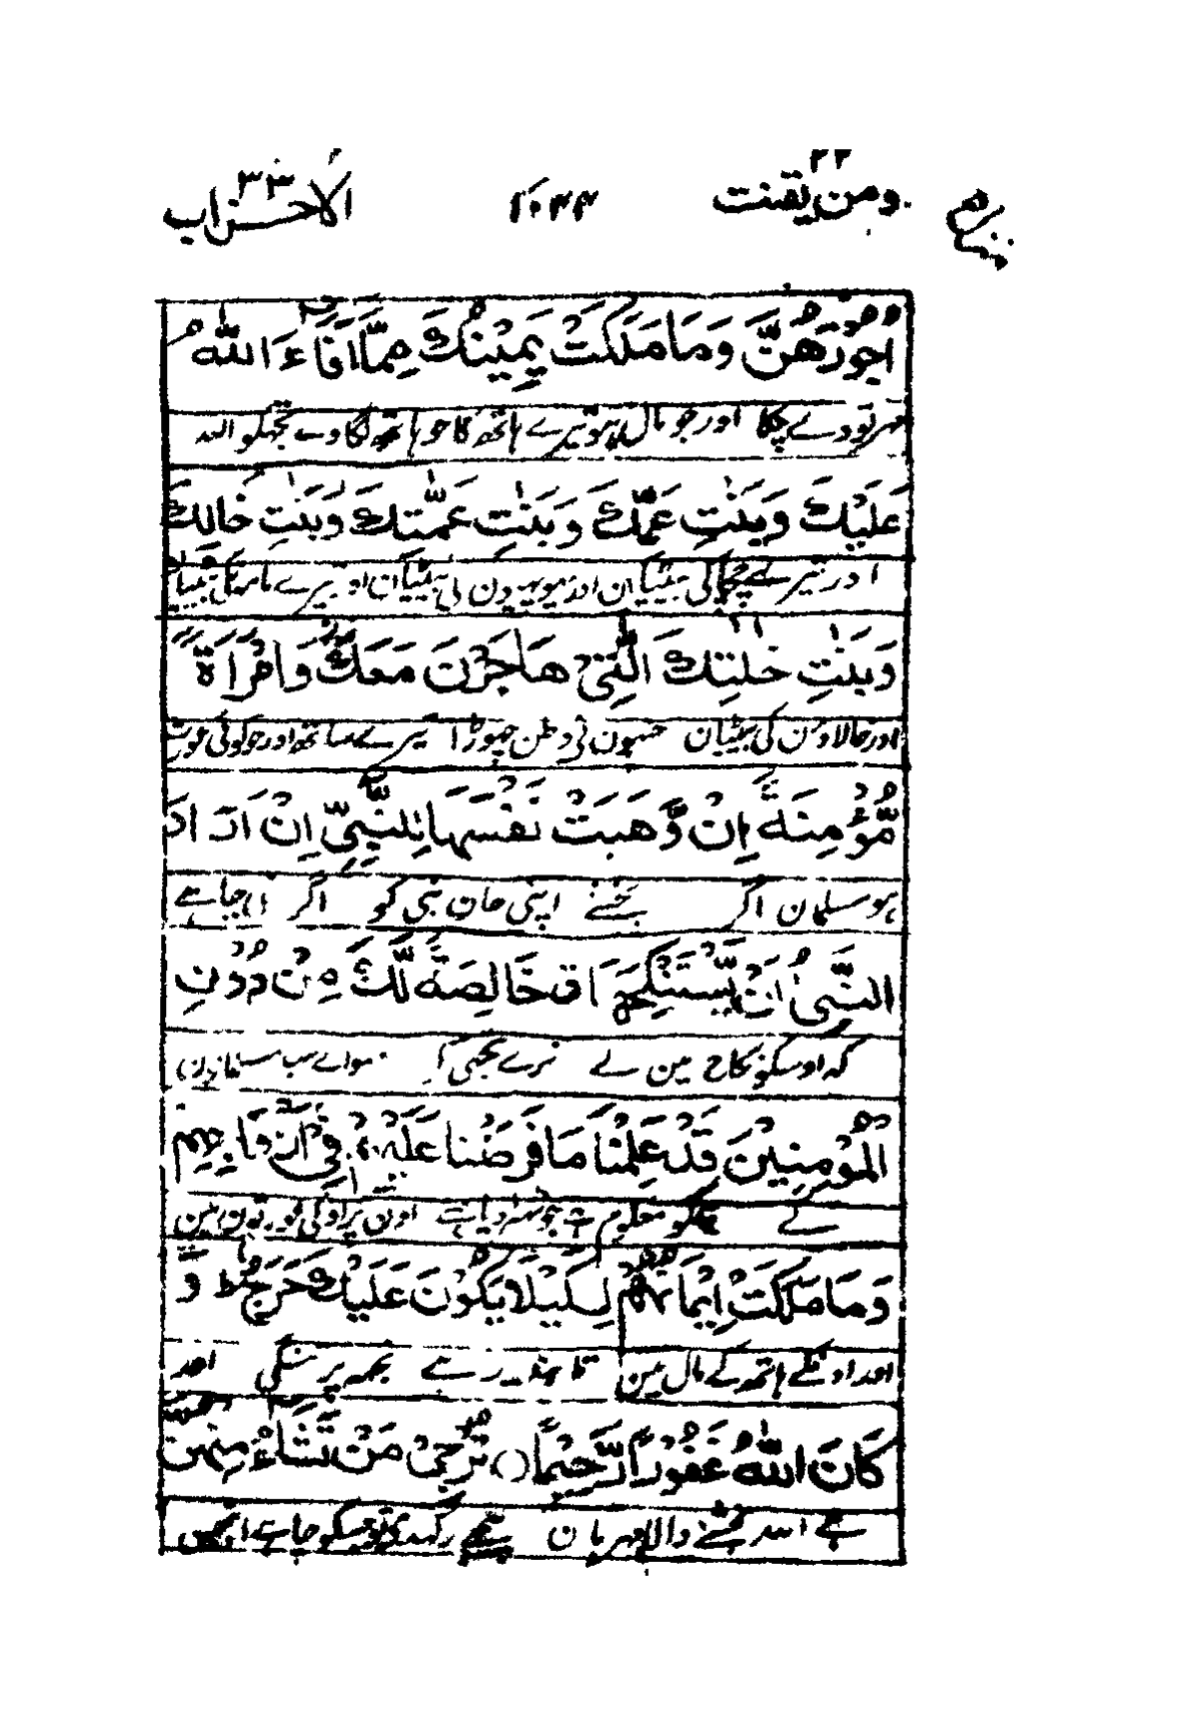 ومن يقنت ٢٢
١٠٤٤
الاحزاب ٣٣
اُجُوْرَهُنَّ وَمَا مَلَكَتْ يَمِيْنُكَ مِمَّا اَفَاءَ اللّٰهُ
مہر تو دے چکا اور جو مال ہو تیرے ہاتھ کا جو ہاتھ لگا دے تجھکو اللہ
عَلَيْكَ وَبَنٰتِ عَمِّكَ وَبَنٰتِ عَمّٰتِكَ وَبَنٰتِ خَالِكَ
اور تیرے چچا کی بیٹیان اور پھوپھیون کی بیٹیان اور تیرے مامو کی بیٹیان
وَبَنٰتِ خٰلٰتِكَ الّٰتِيْ هَاجَرْنَ مَعَكَ وَامْرَاَةً
اور خالاون کی بیٹیان جنہون نی وطن چھوڑا تیرے ساتھ اور جو کوئی عورت
مُّؤْمِنَةً اِنْ وَّهَبَتْ نَفْسَهَا لِلنَّبِيِّ اِنْ اَرَادَ
ہو مسلمان اگر بخشے اپنی جان نبی کو اگر چاہے
النَّبِىُّ اَنْ يَّسْتَنْكِحَهَا ق خَالِصَةً لَّكَ مِنْ دُوْنِ
کہ اوسکو نکاح مین لے نرے تجھی سواے سب
الْمُؤْمِنِيْنَ قَدْ عَلِمْنَا مَا فَرَضْنَا عَلَيْهِمْ فِيْ اَزْوَاجِهِمْ
کے ہمکو معلوم ہے جو اون پر اونکی عورتون مین
وَمَا مَلَكَتْ اَيْمَانُهُمْ لِكَيْلَا يَكُوْنَ عَلَيْكَ حَرَجٌ ط وَ
اور اونکے ہاتھ کے مال مین تا نہ رہے تجھہ پر تنگی اور
كَانَ اللّٰهُ غَفُوْرًا رَّحِيْمًا () تُرْجِيْ مَنْ تَشَاءُ مِنْهُنَّ
ہے اللہ بخشنے والا مہربان پیچھے رکھدی تو جسکو چاہے اونمین